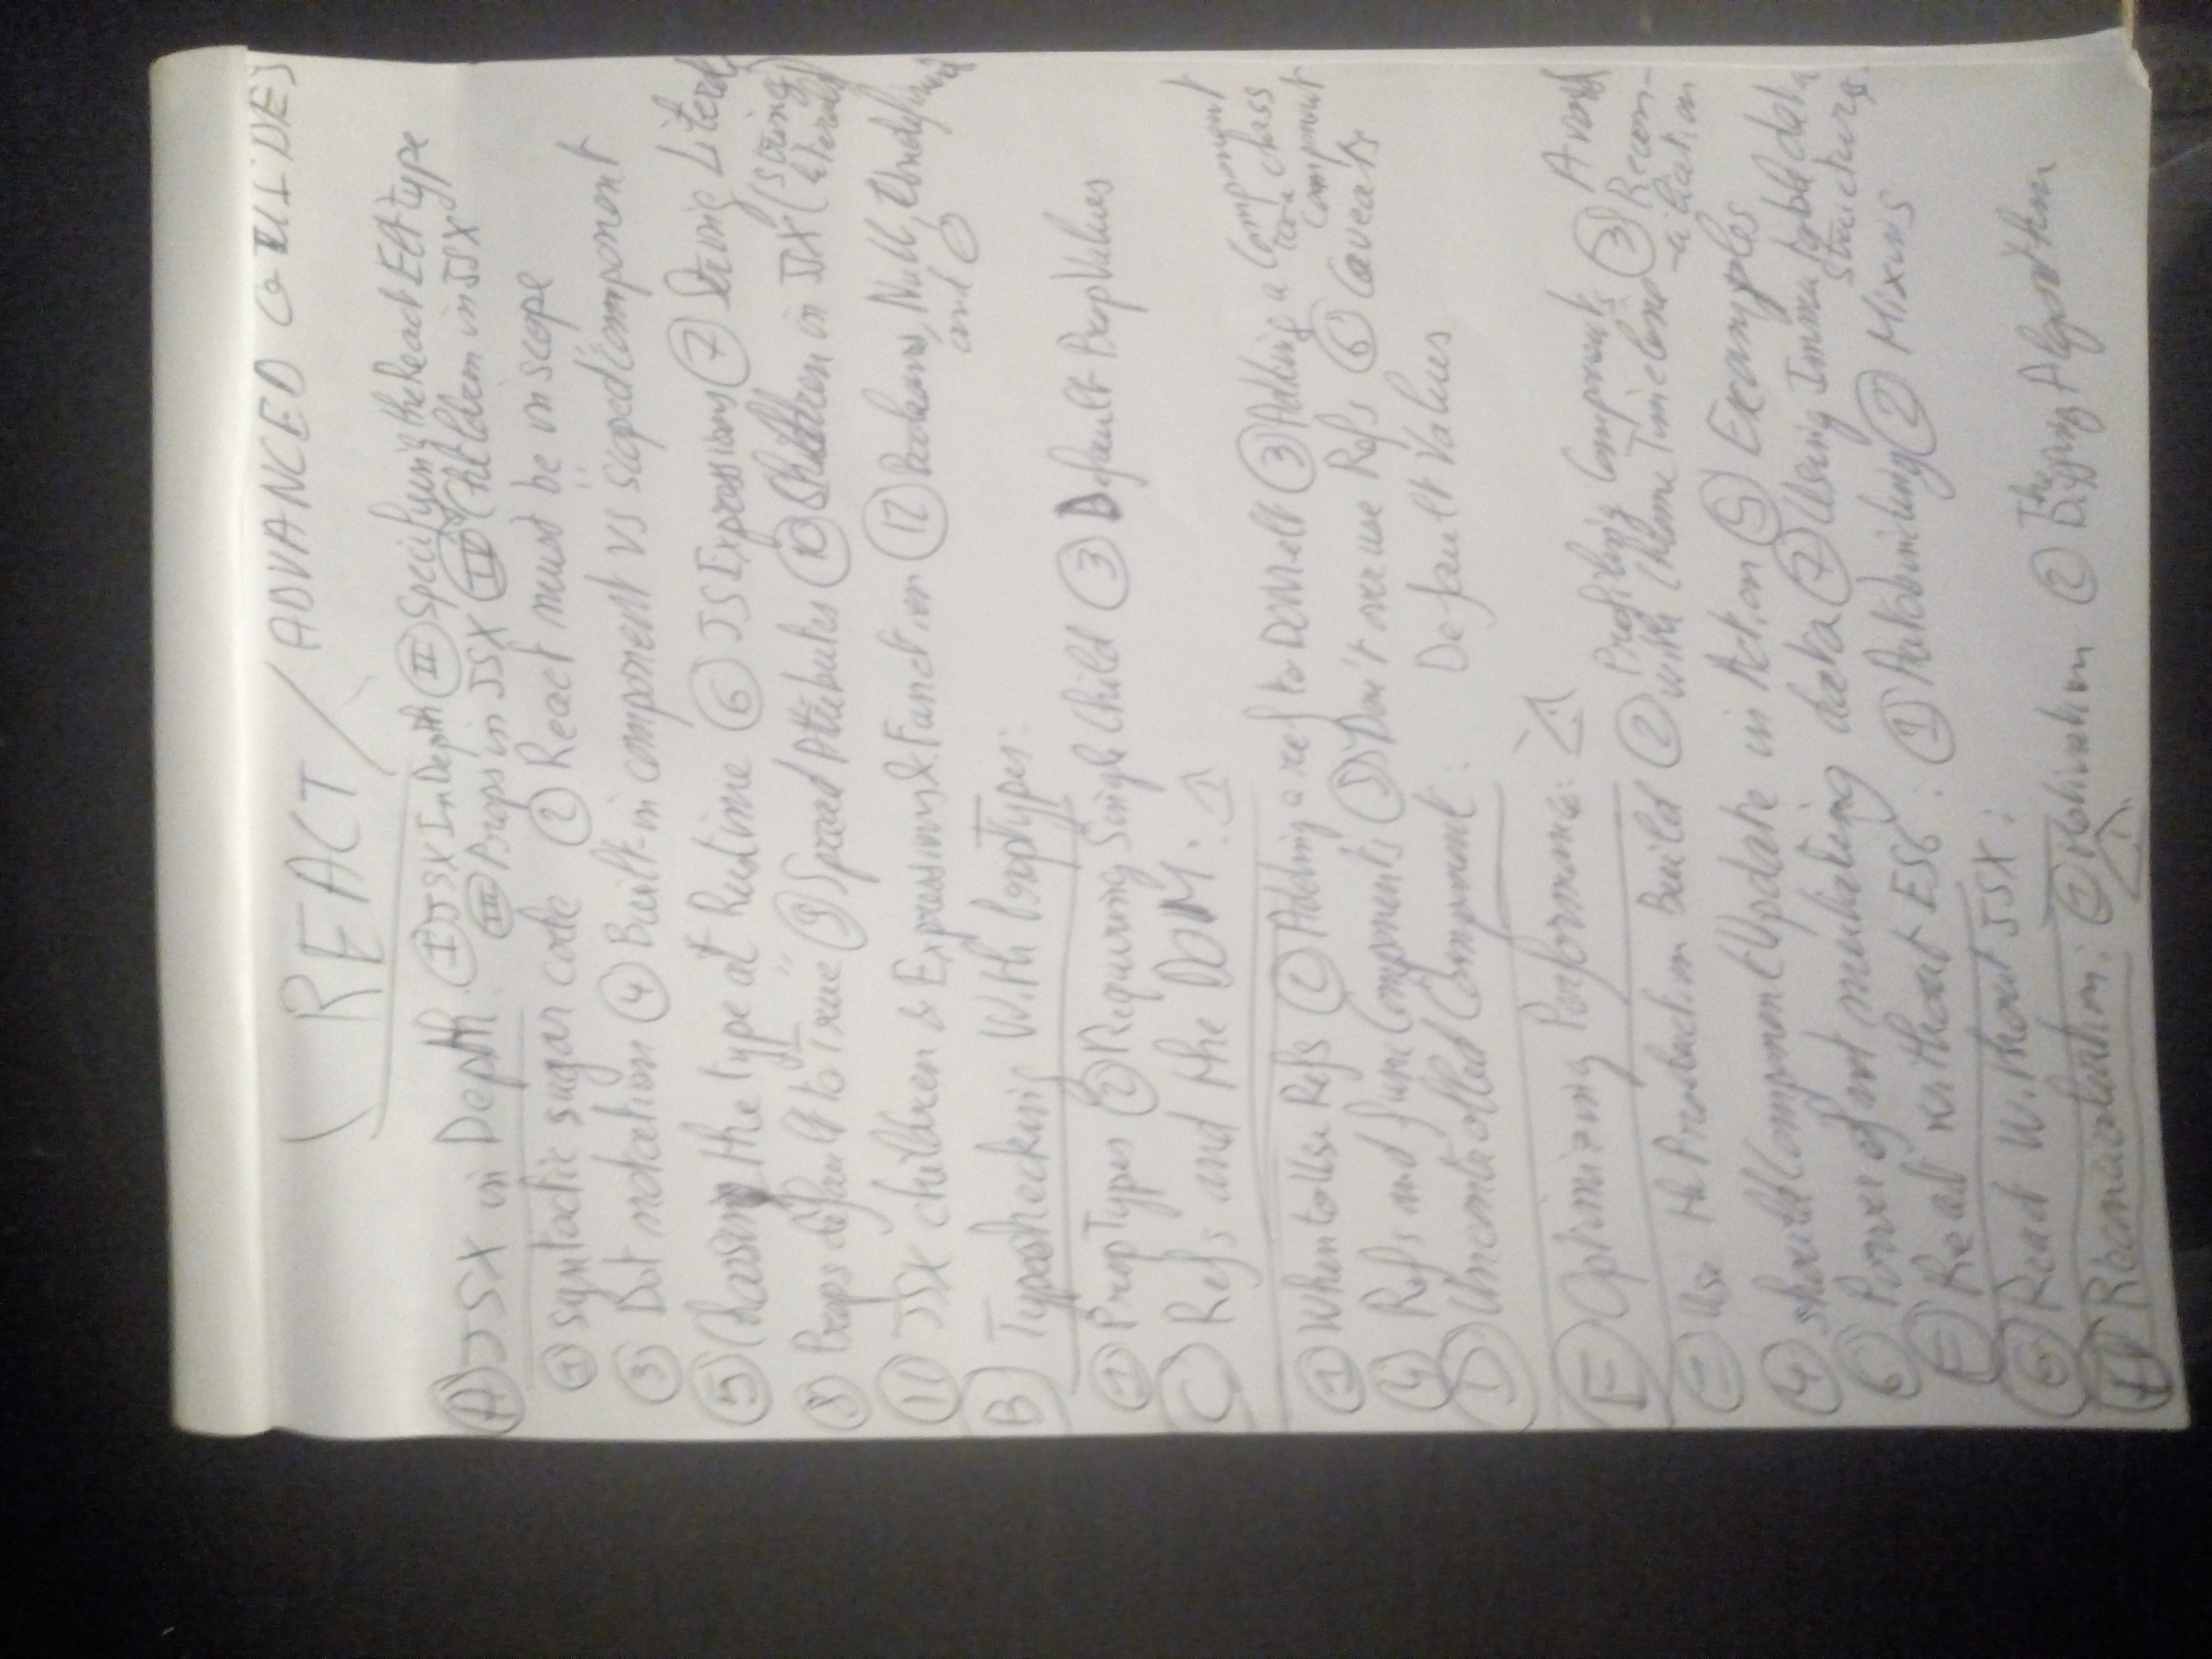 REACT / ADVANCED GUIDES
(A) JSX in Depth: (I) JSX In Depth (II) Specifying the React Elt type
(III) Props in JSX (IV) Children in JSX
(1) syntactic sugar code (2) React must be in scope
(3) Dot notation (4) Built-in component vs scoped component
(5) Choosing the type at Runtime (6) JS Expressions (7) String Literals
(8) Props default to "True" (9) Spread Attributes (10) Children in JSX (string literals)
(11) JSX children & Expressions & Function (12) Booleans, Null, Undefined
and 0
(B) Typechecking With PropTypes:
(1) PropTypes (2) Requiring Single Child (3) Default Prop Values
(C) Refs and the DOM:
(1) When to Use Refs (2) Adding a ref to DOM elt (3) Adding a Component
to a class
component
(4) Refs and func Components (5) Don't overuse Refs (6) Caveats
(D) Uncontrolled Component: Default Values
(E) Optimizing Performance:
(1) Use the Production Build (2) Profiling Components with Chrome Timeline (3) Avoid Reconciliation
(4) shouldComponentUpdate in Action (5) Examples
(6) Power of not mutating data (7) Using Immutable data
structures
(F) React without ES6: (1) Autobinding (2) Mixins
(G) React Without JSX:
(H) Reconciliation: (1) Motivation (2) The Diffing Algorithm